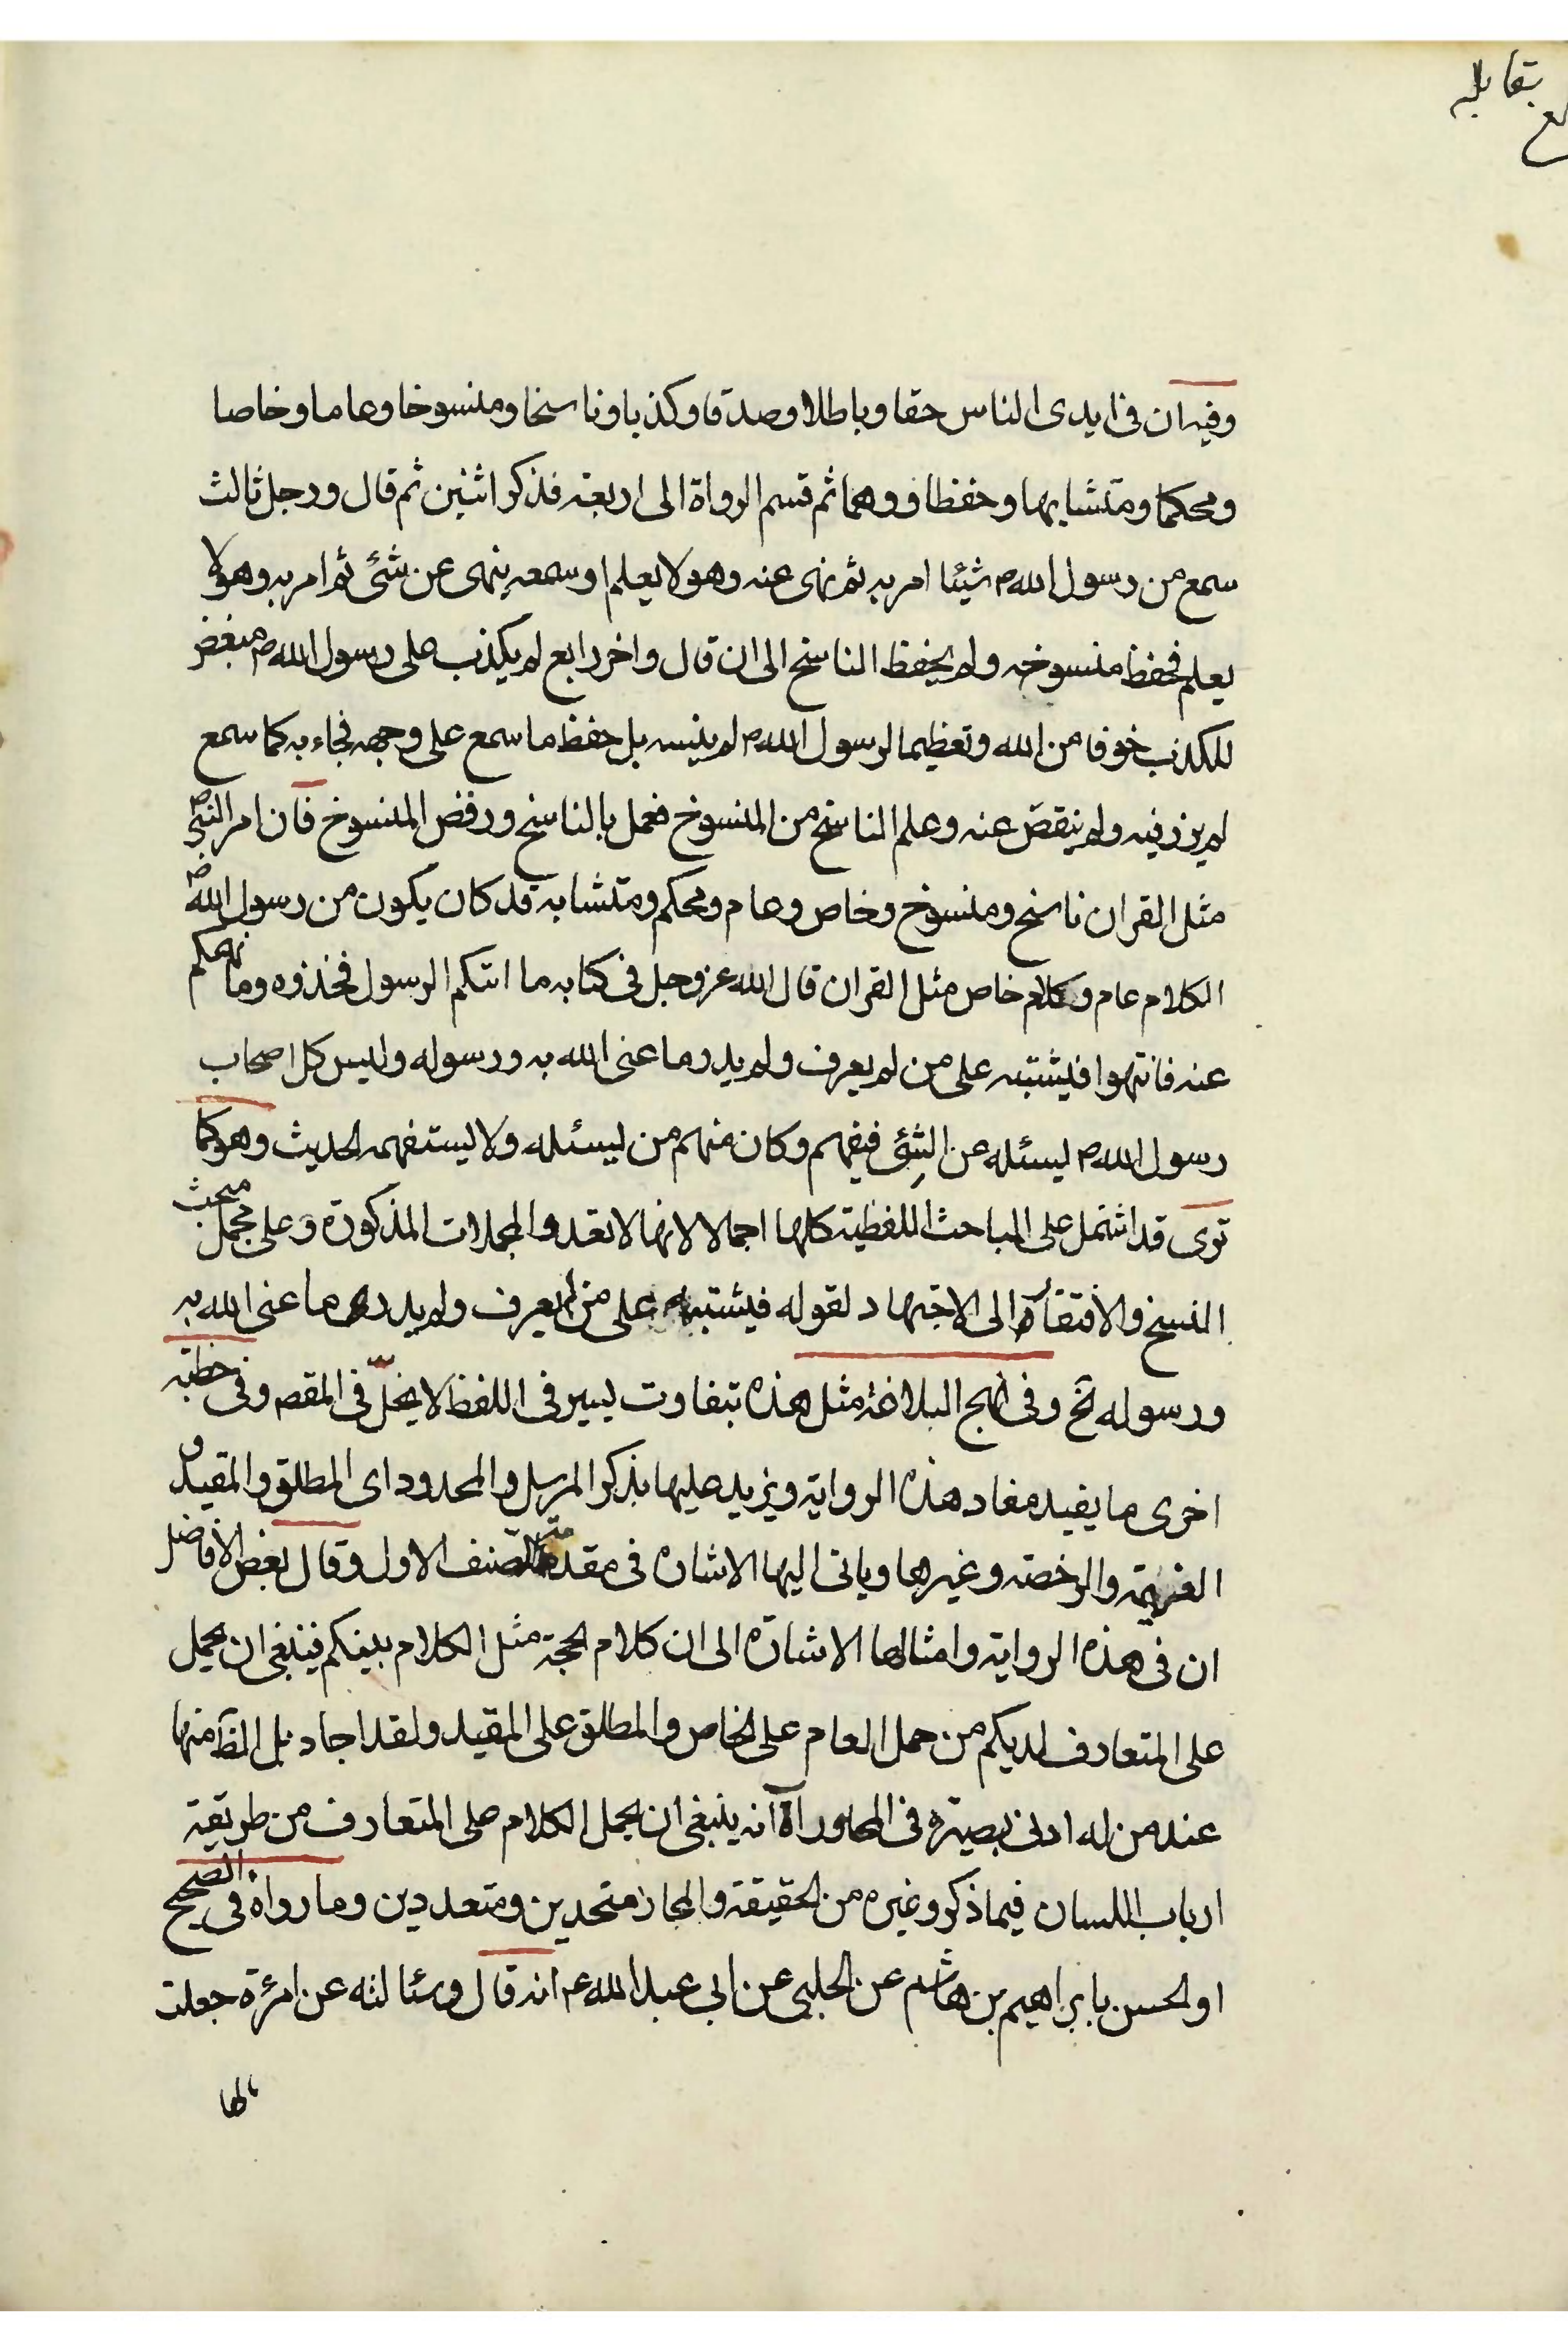 بلغ بقابله
وفيه ان فى ايدى الناس حقا وباطلا وصدقا وكذبا وناسخا ومنسوخا وعاما وخاصا
ومحكما ومتشابها وحفظا ووهما ثم قسم الرواة الى اربعة فذكر اثنين ثم قال ورجل ثالث
سمع من رسول الله ص شيئا امر به ثم نهى عنه وهو لا يعلم او سمعه ينهى عن شئ ثم امر به وهو لا
يعلم فحفظ منسوخه ولم يحفظ الناسخ الى ان قال واخر رابع لم يكذب على رسول الله ص مبغض
للكذب خوفا من الله وتعظيما لرسول الله ص لم ينسه بل حفظ ما سمع على وجهه فجاء به كما سمع
لم يزد فيه ولم ينقص عنه وعلم الناسخ من المنسوخ فعمل بالناسخ ورفض المنسوخ فان امر النبى ص
مثل القران ناسخ ومنسوخ وخاص وعام ومحكم ومتشابه قد كان يكون من رسول الله ص
الكلام عام وكلام خاص مثل القران قال الله عز وجل فى كتابه ما اتيكم الرسول فخذوه وما نهيكم
عنه فانتهوا فيشتبه على من لم يعرف ولم يدر ما عنى الله به ورسوله وليس كل اصحاب
رسول الله ص يسئله عن الشئ فيفهم وكان منهم من يسئله ولا يستفهمه الحديث وهو كما
ترى قد اشتمل على المباحث اللفظية كلها اجمالا لانها لا تعدو المجملات المذكورة وعلى مجمل مبحث
النسخ والافتقار الى الاجتهاد لقوله فيشتبه على من لم يعرف ولم يدر ما عنى الله به
ورسوله تخ وفى نهج البلاغة مثل هذه بتفاوت يسير فى اللفظ لا يخلّ فى المقصم وفى خطبة
اخرى ما يفيد مفاد هذه الرواية ويزيد عليها بذكر المرسل والمحدود اى المطلق والمقيد و
العزيمة والرخصة وغيرها وياتى اليها الاشارة فى مقدمة الصنف الاول وقال بعض الافاضل
ان فى هذه الرواية وامثالها الاشارة الى ان كلام الحجة مثل الكلام بينكم فينبغى ان يحمل
على المتعارف لديكم من حمل العام على الخاص والمطلق على المقيد ولقد اجاد بل الظ منها
عند من له ادنى بصيرة فى المحاورات انه ينبغى ان يحمل الكلام على المتعارف من طريقة
ارباب اللسان فيما ذكر وغيره من الحقيقة والمجاز متحدين ومتعددين وما رواه فى الصحيح
او الحسن بابراهيم بن هاشم عن الحلبى عن ابى عبد الله ع انه قال وسئالته عن امرئة جعلت
مالها